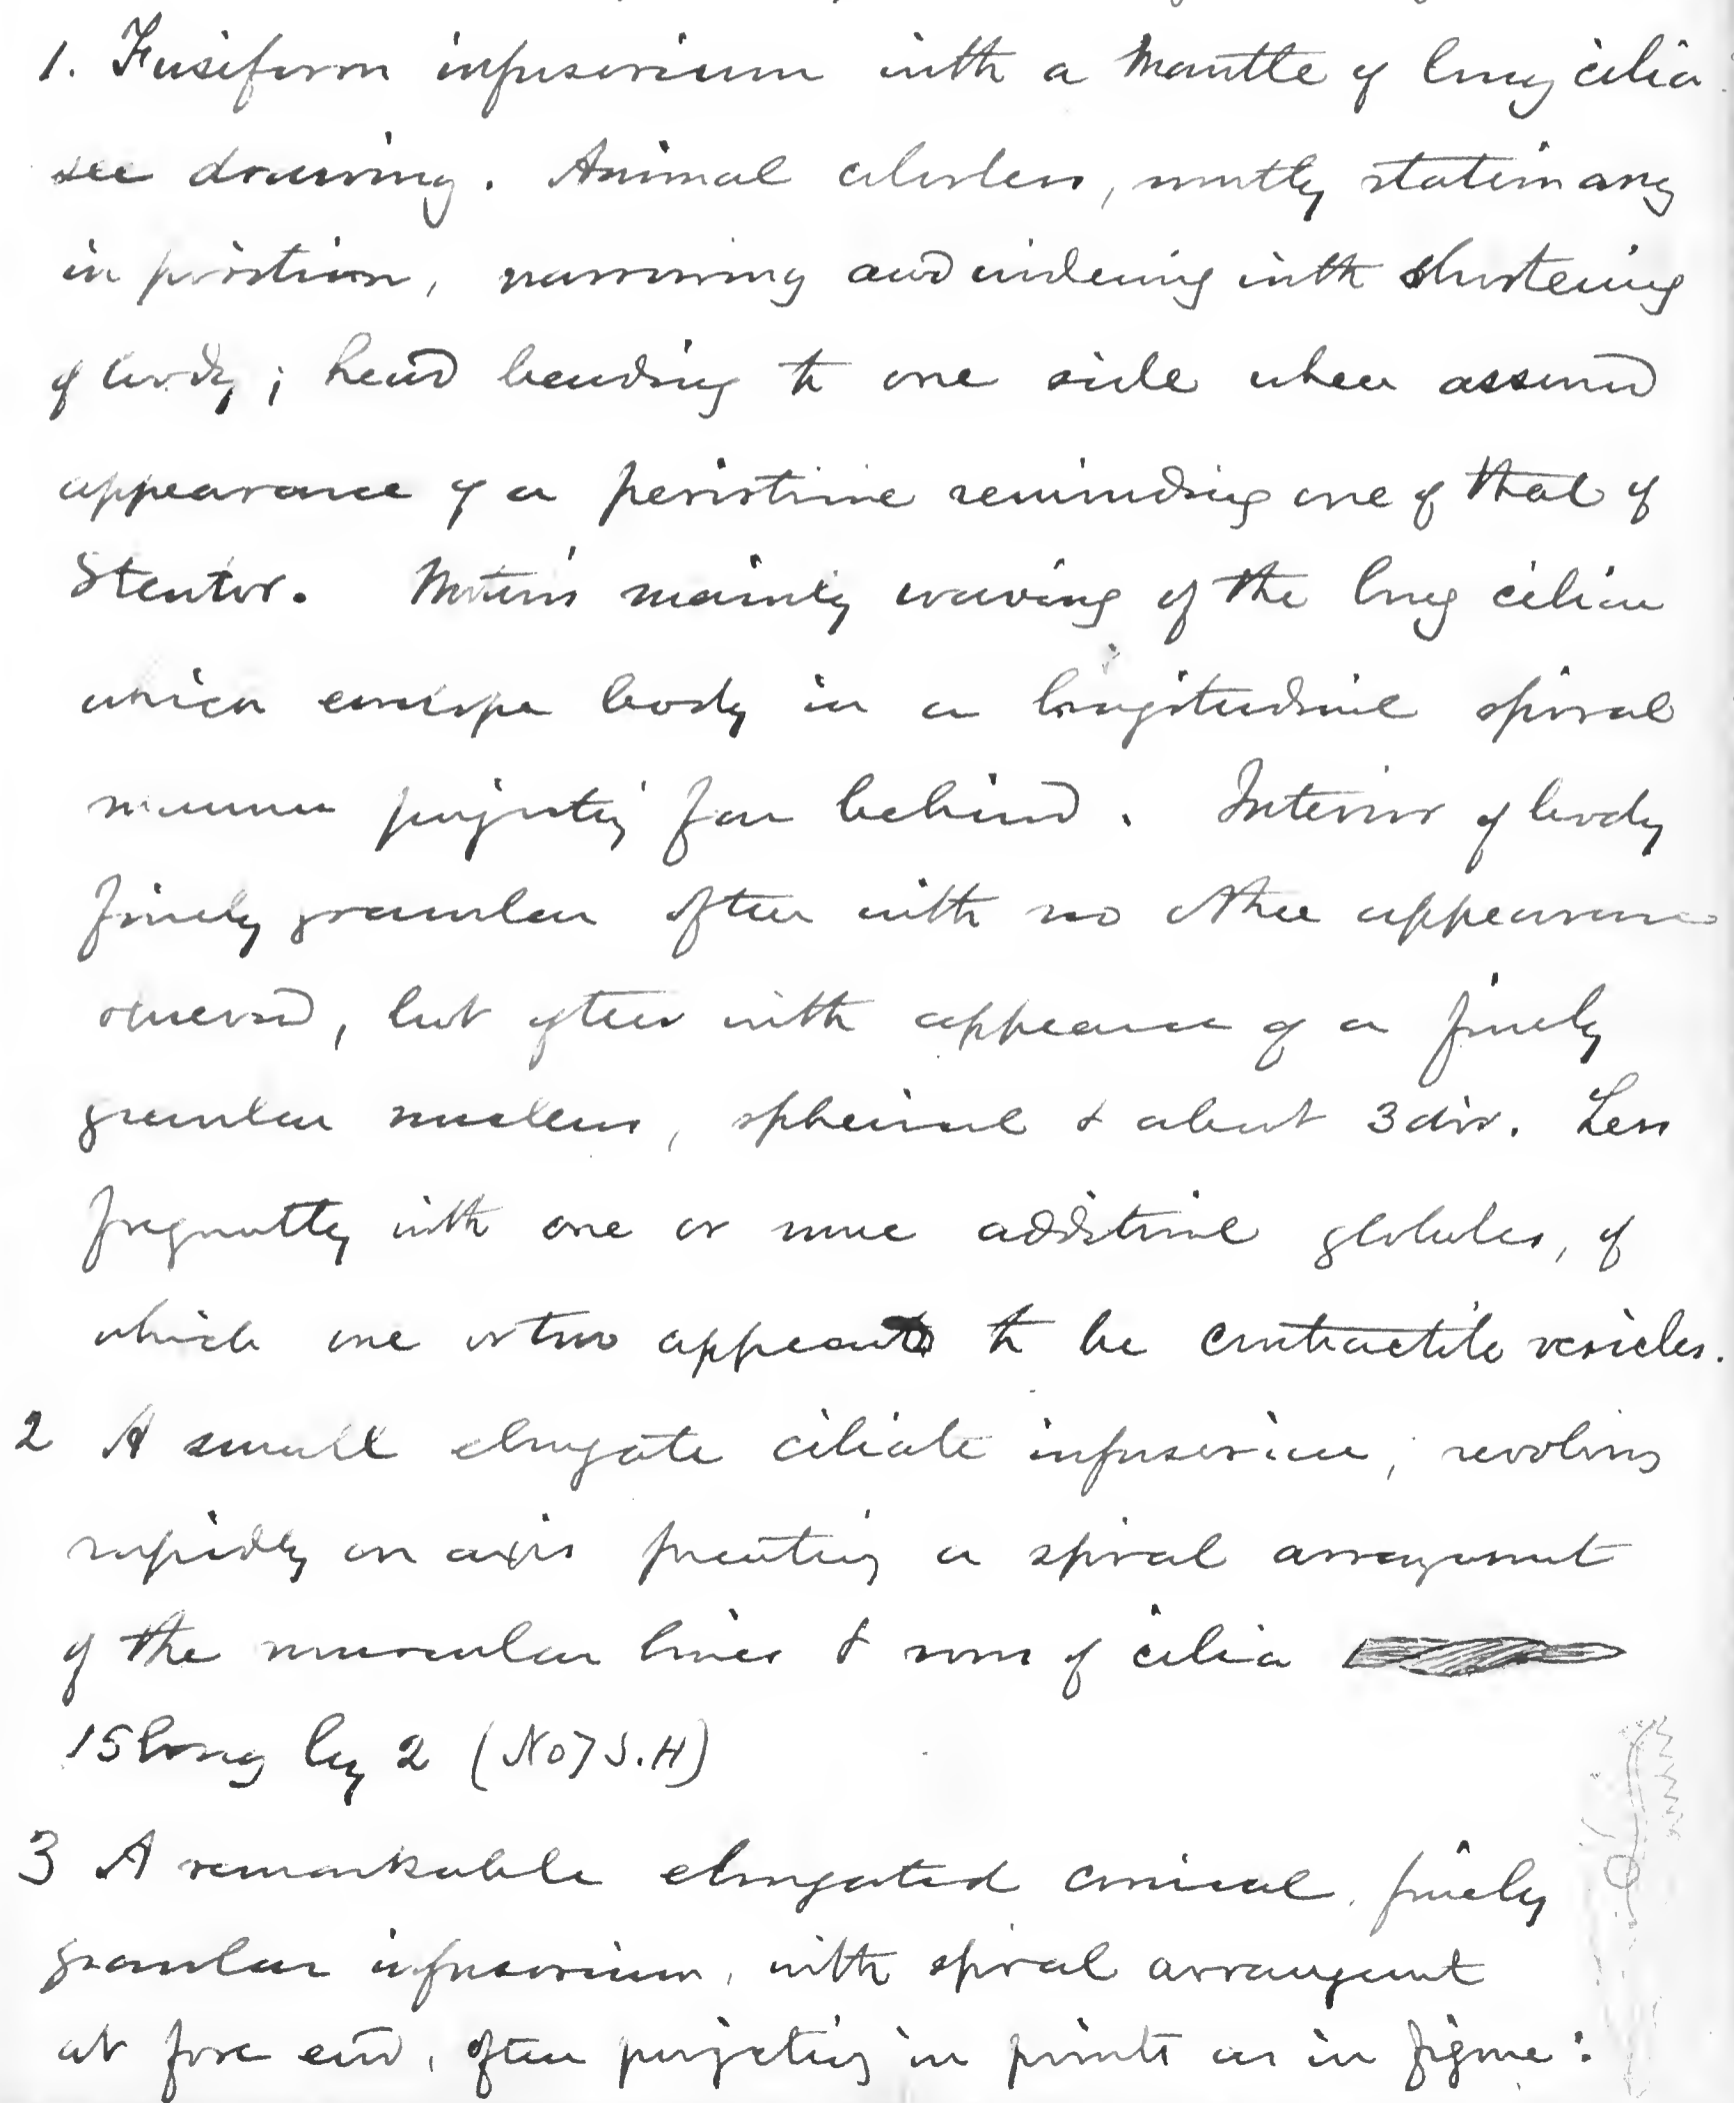 1. Fusiform infusorium with a mantle of long cilia
see drawing. Animal colorless, mostly stationary
in position, narrowing and widening with shortening
of body; head bending to one side when assumed
appearance of a peristome reminding one of that of
Stentor. Motion's mainly waving of the long cilia
which envelope body in a longitudinal spiral
manner projecting far behind. Interior of body
finely granular often with no other appearance
observed, but often with appearance of a finely
granular nucleus, spherical & about 3 div. Less
frequently with one or more additional globules, of
which one or two appear to be contractile vesicles.
2 A small elongate ciliate infusorium, revolving
rapidly on axis presenting a spiral arrangement
of the muscular lines & rows of cilia
15 long by 2 (No 7 S.H)
3 A remarkable elongated conical, finely
granular infusorium, with spiral arrangement
at fore end, often projecting in points as in figure: